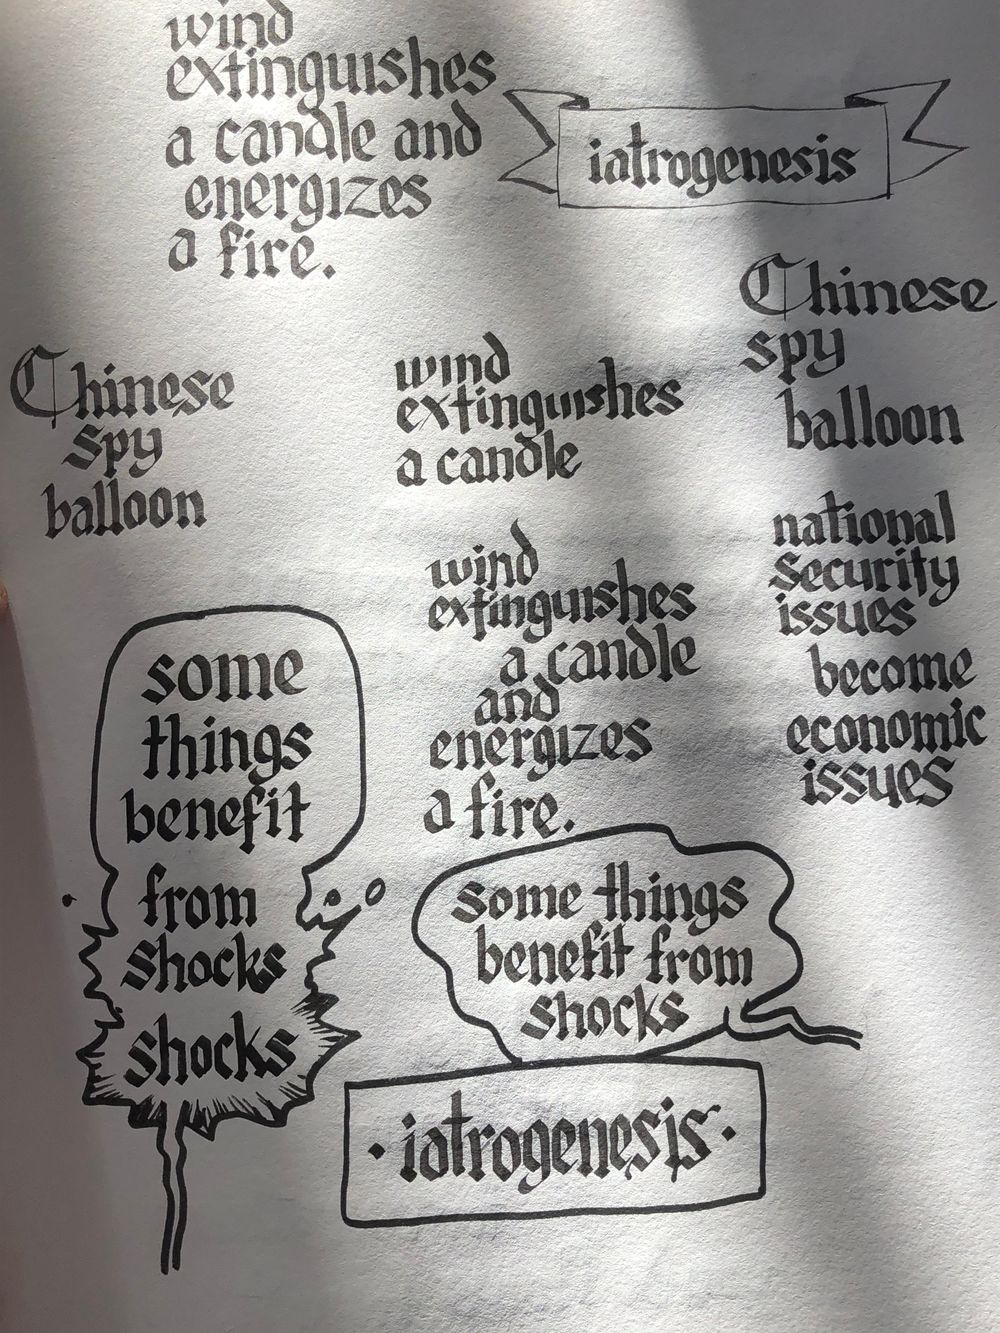 wind
extinguishes
a candle and
energizes
a fire.
iatrogenesis
Chinese
spy
balloon
Chinese
spy
balloon
wind
extinguishes
a candle
wind
extinguishes
a candle
and
energizes
a fire.
national
security
issues
become
economic
issues
some
things
benefit
from
shocks
shocks
some things
benefit from
shocks
·iatrogenesis·